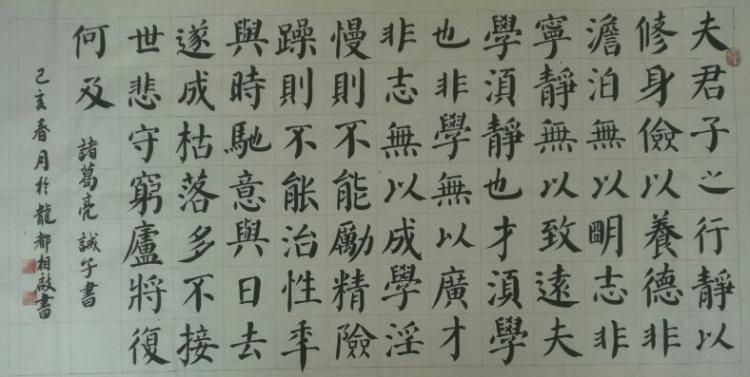 夫君子之行靜以
修身儉以養德非
澹泊無以眀志非
寧靜無以致遠夫
學湏靜也才湏學
也非學無以廣才
非志無以成學淫
慢則不能勵精險
躁則不能治性年
與時馳意與日去
遂成枯落多不接
世悲守窮廬將復
何及
諸葛亮誡子書
己亥春月於龍都相啟書